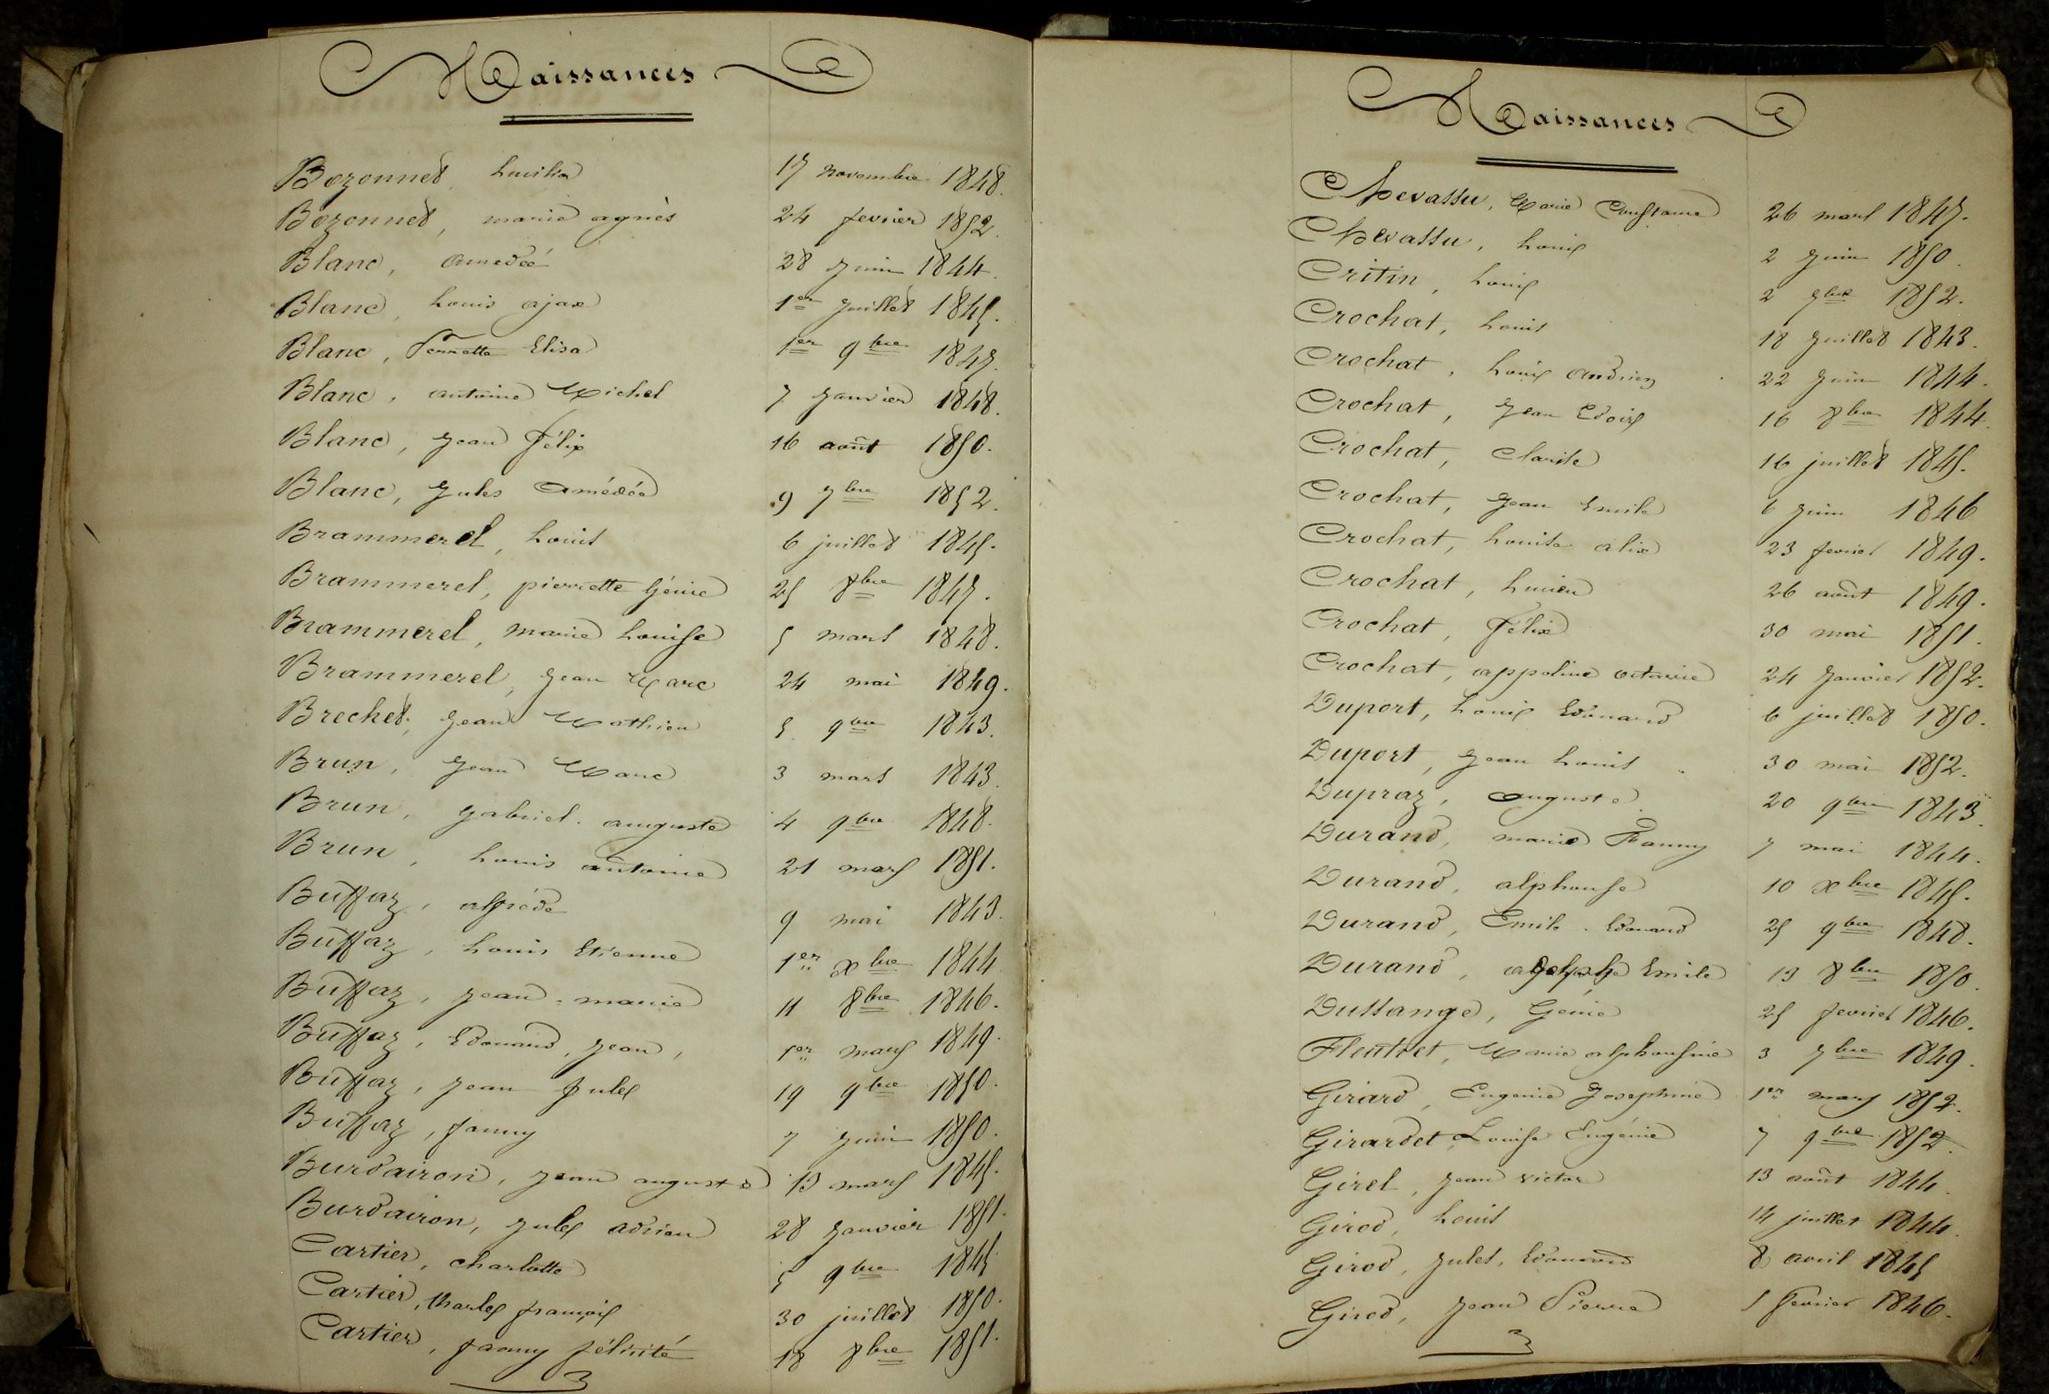 Naissances
Bozonnet, Lucilia 17 novembre 1848.
Bozonnet, marie agnès 24 fevrier 1852.
Blanc, amedeé 28 Juin 1844.
Blanc, Louis ajax 1er Juillet 1845.
Blanc, Perrette Elisa 1er 9bre 1847.
Blanc, antoine Michel 7 Janvier 1848.
Blanc, Jean Félix 16 août 1850.
Blanc, Jules Amédée 9 7bre 1852.
Brammerel, Louis 6 juillet 1845.
Brammerel, pierrette Génie 25 8bre 1847.
Brammerel, marie Louise 5 mars 1848.
Brammerel, Jean Marc 24 mai 1849.
Brechet, Jean Mathieu 5 9bre 1843.
Brun, Jean Marc 3 mars 1843.
Brun, gabriel auguste 4 9bre 1848.
Brun, Louis antoine 21 mars 1851.
Buffaz, alfrède 9 mai 1843.
Buffaz, Louis Etienne 1er xbre 1844
Buffaz, Jean-marie 11 8bre 1846.
Buffaz, Edouard, Jean, 1er mars 1849.
Buffaz, Jean Jules 19 9bre 1850.
Buffaz, fanny 7 Juin 1850.
Burdairon, Jean auguste 13 mars 1845.
Burdairon, Jules adrien 28 Janvier 1851.
Cartier, charlotte 5 9bre 1845
Cartier, Charles françois 30 juillet 1850.
Cartier, fanny félicité 18 8bre 1851.
Naissances
Chevassu, Marie Constance 26 mars 1847.
Chevassu, Louis 2 Juin 1850.
Critin, Louis 2 9bre 1852.
Crochat, Louis 18 Juillet 1843.
Crochat, Louis Andrien 22 Juin 1844.
Crochat, Jean 16 8bre 1844.
Crochat, Clarisle 16 juillet 1845.
Crochat, Jean Emile 6 Juin 1846
Crochat, Louise alix 23 fevrier 1849.
Crochat, Lucien 26 août 1849.
Crochat, Félix 30 mai 1851.
Crochat, appoline octavie 24 Janvier 1852.
Duport, Louis Edouard 6 juillet 1850.
Duport, Jean Louis 30 mai 1852.
Dupraz, auguste 20 9bre 1843.
Durand, marie Fanny 7 mai 1844.
Durand, alphonse 10 xbre 1845.
Durand, Emile Edouard 25 9bre 1848.
Durand, adolphe Emile 13 8bre 1850.
Dussange, Génie 25 fevrier 1846.
Fleutret, Marie alphonsine 3 7bre 1849.
Girard, Eugenie Josephine 1er mars 1852.
Girardet Louise Eugénie 7 9bre 1852.
Girel, Jean victor 13 août 1844.
Girod, Louis 14 juillet 1844.
Girod, Jules, Edouard 8 avril 1845
Girod, Jean Pierre 5 fevrier 1846.